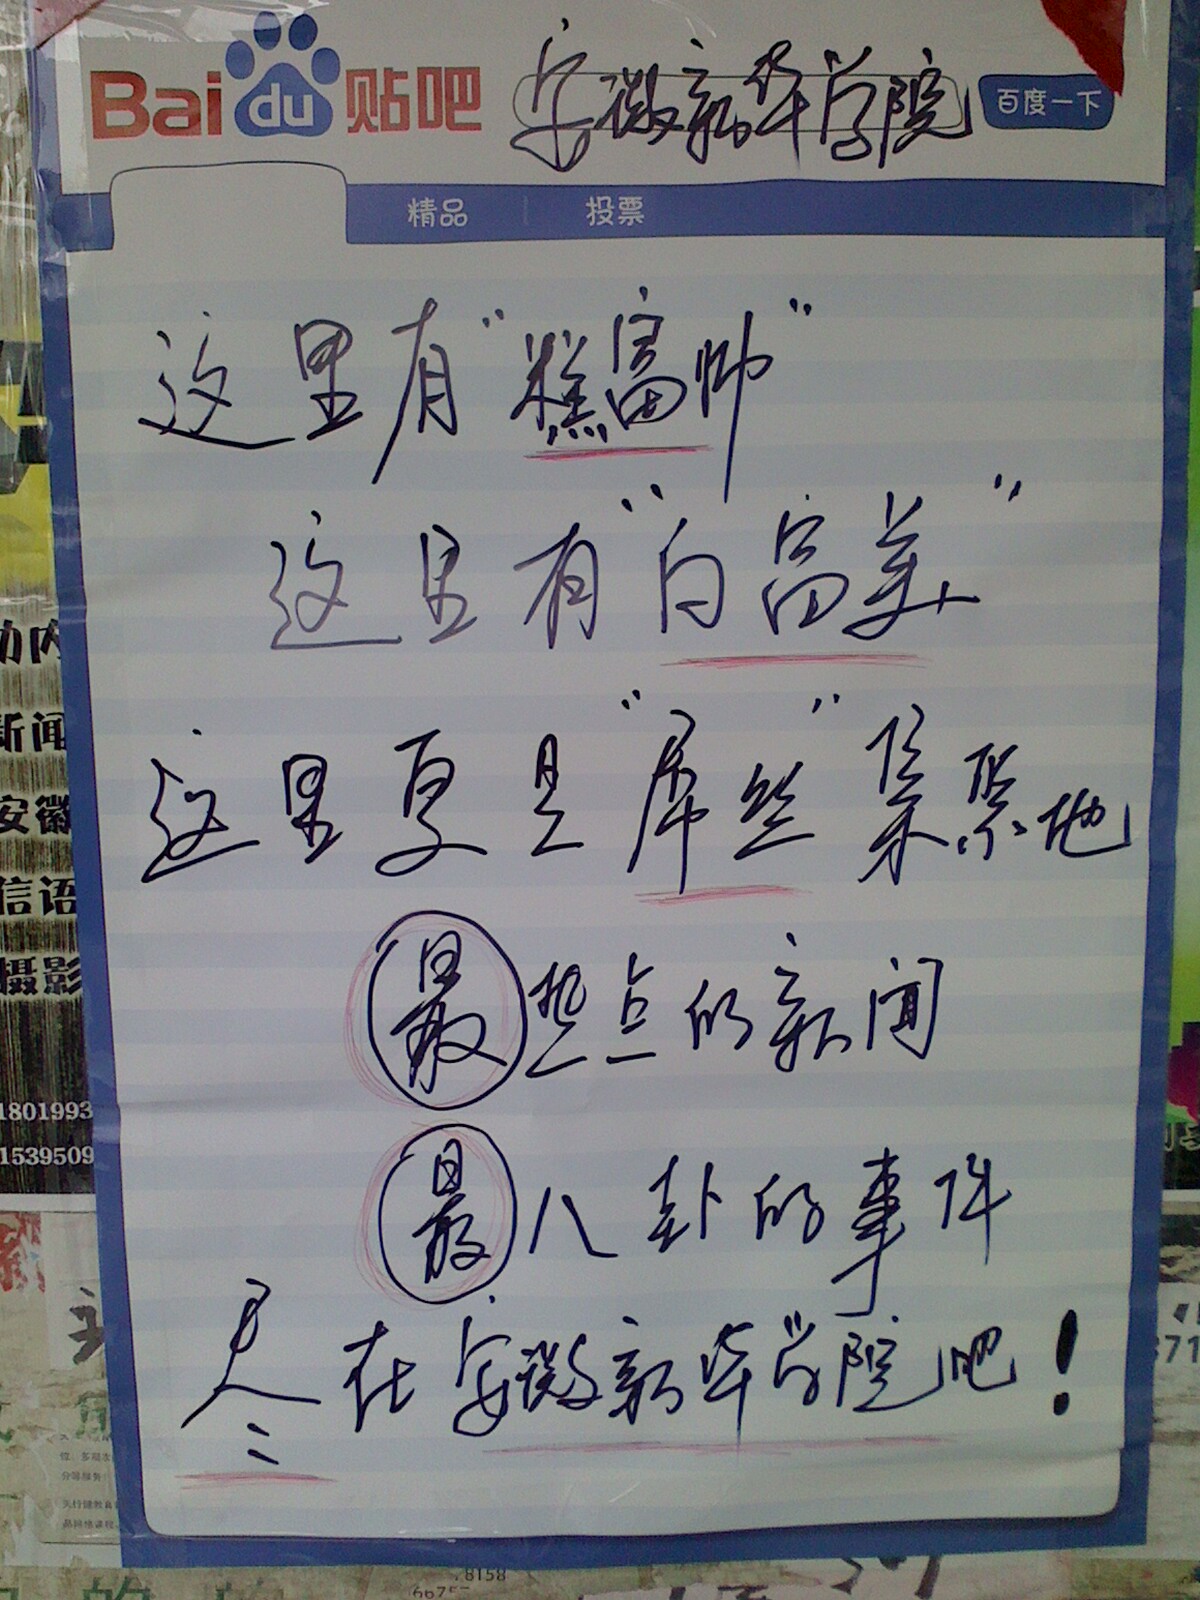 Baidu贴吧 安徽新华学院 百度一下
精品 投票
这里有"糕富帅"
这里有"白富美"
这里更是"屌丝"集聚地
最热点的新闻
最八卦的事件
尽在安徽新华学院吧!
动内
新闻
安徽
信语
摄影
1801993
1539509
8158